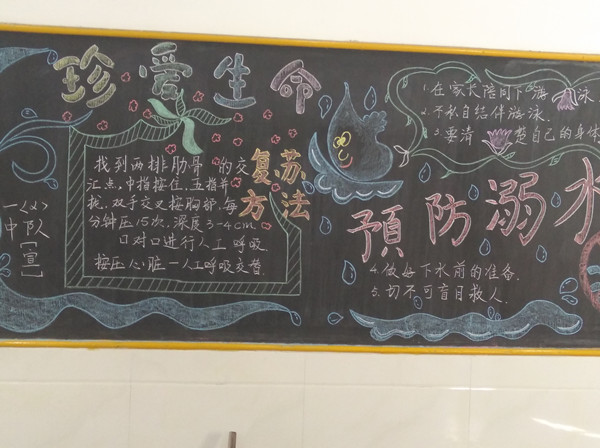 珍爱生命
找到两排肋骨的交
汇点,中指按住,五指并
拢,双手交叉按胸部,每
分钟压15次,深度3-4cm
口对口进行人工呼吸
按压心脏一人工呼吸交替
复苏
方法
一<2>
中队
[宣]
1.在家长陪同下游泳.
2.不私自结伴游泳.
3.要清楚自己的身体
預防溺水
4.做好下水前的准备.
5.切不可盲目救人.